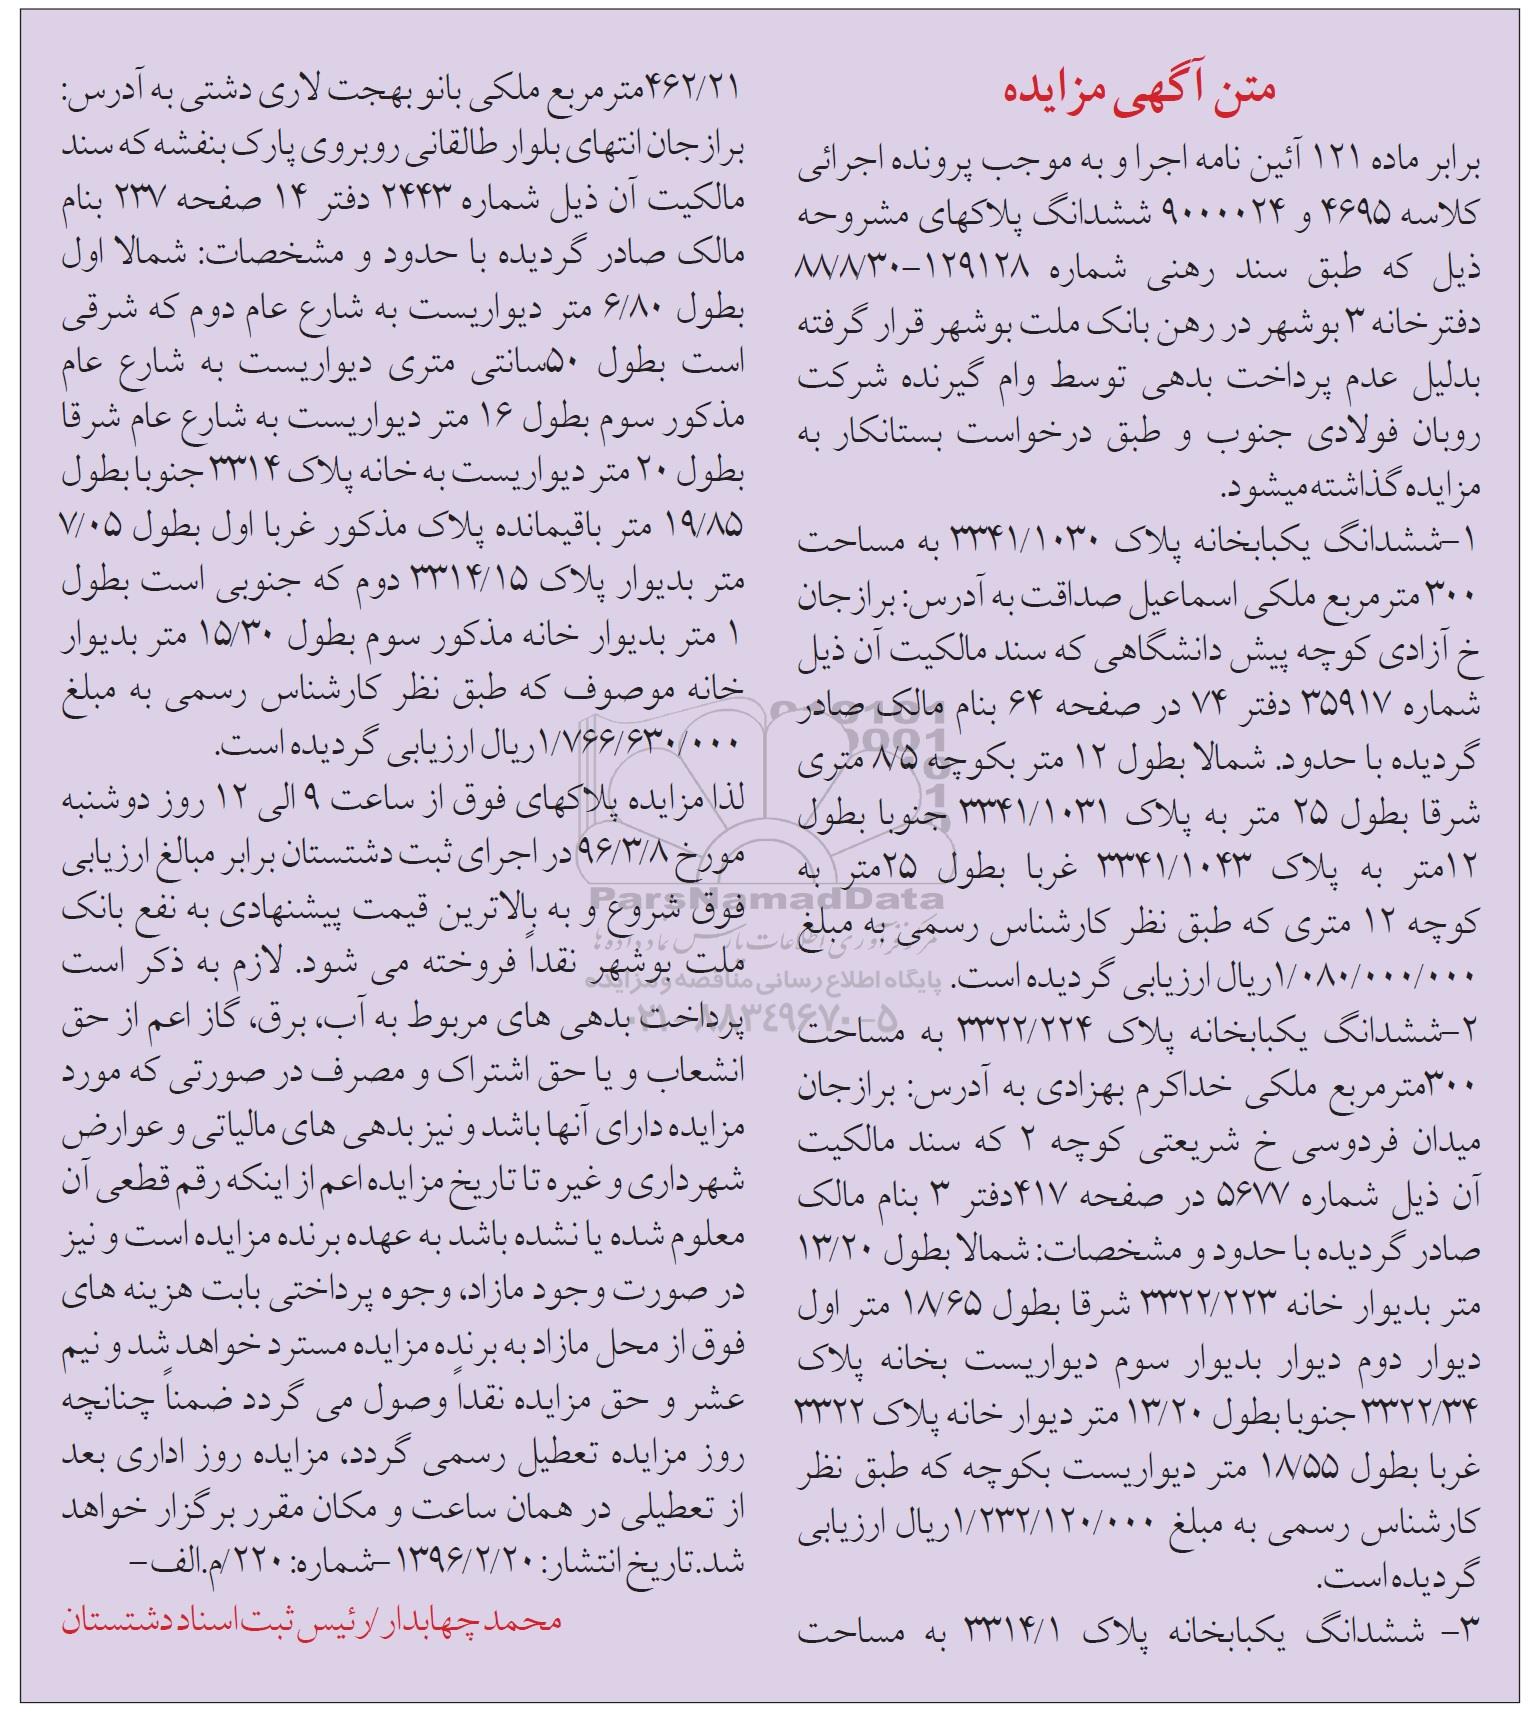 متن آگهی مزایده
برابر ماده ۱۲۱ آئین نامه اجرا و به موجب پرونده اجرائی
کلاسه ۴۶۹۵ و ۹۰۰۰۰۲۴ ششدانگ پلاکهای مشروحه
ذیل که طبق سند رهنی شماره ۱۲۹۱۲۸-۸۸/۸/۳۰
دفترخانه ۳ بوشهر در رهن بانک ملت بوشهر قرار گرفته
بدلیل عدم پرداخت بدهی توسط وام گیرنده شرکت
روبان فولادی جنوب و طبق درخواست بستانکار به
مزایده گذاشته میشود.
۱-ششدانگ یکبابخانه پلاک ۳۳۴۱/۱۰۳۰ به مساحت
۳۰۰ مترمربع ملکی اسماعیل صداقت به آدرس: برازجان
خ آزادی کوچه پیش دانشگاهی که سند مالکیت آن ذیل
شماره ۳۵۹۱۷ دفتر ۷۴ در صفحه ۶۴ بنام مالک صادر
گردیده با حدود. شمالا بطول ۱۲ متر بکوچه ۸/۵ متری
شرقا بطول ۲۵ متر به پلاک ۳۳۴۱/۱۰۳۱ جنوبا بطول
۱۲متر به پلاک ۳۳۴۱/۱۰۴۳ غربا بطول ۲۵متر به
کوچه ۱۲ متری که طبق نظر کارشناس رسمی به مبلغ
۱/۰۸۰/۰۰۰/۰۰۰ریال ارزیابی گردیده است.
۲-ششدانگ یکبابخانه پلاک ۳۳۲۲/۲۲۴ به مساحت
۳۰۰مترمربع ملکی خداکرم بهزادی به آدرس: برازجان
میدان فردوسی خ شریعتی کوچه ۲ که سند مالکیت
آن ذیل شماره ۵۶۷۷ در صفحه ۴۱۷دفتر ۳ بنام مالک
صادر گردیده با حدود و مشخصات: شمالا بطول ۱۳/۲۰
متر بدیوار خانه ۳۳۲۲/۲۲۳ شرقا بطول ۱۸/۶۵ متر اول
دیوار دوم دیوار بدیوار سوم دیواریست بخانه پلاک
۳۳۲۲/۳۴ جنوبا بطول ۱۳/۲۰ متر دیوار خانه پلاک ۳۳۲۲
غربا بطول ۱۸/۵۵ متر دیواریست بکوچه که طبق نظر
کارشناس رسمی به مبلغ ۱/۲۳۲/۱۲۰/۰۰۰ریال ارزیابی
گردیده است.
۳- ششدانگ یکبابخانه پلاک ۳۳۱۴/۱ به مساحت
۴۶۲/۲۱مترمربع ملکی بانو بهجت لاری دشتی به آدرس:
برازجان انتهای بلوار طالقانی روبروی پارک بنفشه که سند
مالکیت آن ذیل شماره ۲۴۴۳ دفتر ۱۴ صفحه ۲۳۷ بنام
مالک صادر گردیده با حدود و مشخصات: شمالا اول
بطول ۶/۸۰ متر دیواریست به شارع عام دوم که شرقی
است بطول ۵۰سانتی متری دیواریست به شارع عام
مذکور سوم بطول ۱۶ متر دیواریست به شارع عام شرقا
بطول ۲۰ متر دیواریست به خانه پلاک ۳۳۱۴ جنوبا بطول
۱۹/۸۵ متر باقیمانده پلاک مذکور غربا اول بطول ۷/۰۵
متر بدیوار پلاک ۳۳۱۴/۱۵ دوم که جنوبی است بطول
۱ متر بدیوار خانه مذکور سوم بطول ۱۵/۳۰ متر بدیوار
خانه موصوف که طبق نظر کارشناس رسمی به مبلغ
۱/۷۶۶/۶۳۰/۰۰۰ریال ارزیابی گردیده است.
لذا مزایده پلاکهای فوق از ساعت ۹ الی ۱۲ روز دوشنبه
مورخ ۹۶/۳/۸ در اجرای ثبت دشتستان برابر مبالغ ارزیابی
فوق شروع و به بالاترین قیمت پیشنهادی به نفع بانک
ملت بوشهر نقداً فروخته می شود. لازم به ذکر است
پرداخت بدهی های مربوط به آب، برق، گاز اعم از حق
انشعاب و یا حق اشتراک و مصرف در صورتی که مورد
مزایده دارای آنها باشد و نیز بدهی های مالیاتی و عوارض
شهرداری و غیره تا تاریخ مزایده اعم از اینکه رقم قطعی آن
معلوم شده یا نشده باشد به عهده برنده مزایده است و نیز
در صورت وجود مازاد، وجوه پرداختی بابت هزینه های
فوق از محل مازاد به برنده مزایده مسترد خواهد شد و نیم
عشر و حق مزایده نقداً وصول می گردد ضمناً چنانچه
روز مزایده تعطیل رسمی گردد، مزایده روز اداری بعد
از تعطیلی در همان ساعت و مکان مقرر برگزار خواهد
شد.تاریخ انتشار: ۱۳۹۶/۲/۲۰ -شماره: ۲۲۰/م.الف -
محمد چهابدار/رئیس ثبت اسناد دشتستان
ParsNamadData
پایگاه اطلاع رسانی مناقصه و مزایده